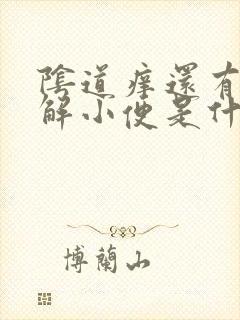 陰道痒還有
解小便是什
博蘭山